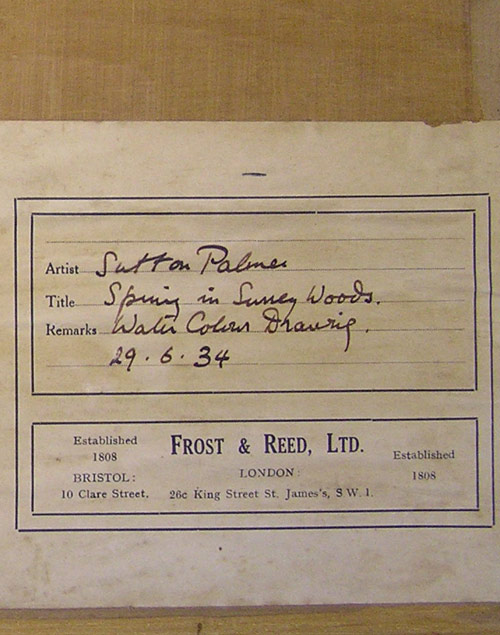 Artist Sutton Palmer
Title Spring in Surrey Woods.
Remarks Water Colour Drawing.
29.6.34
Established
1808
FROST & REED, LTD.
BRISTOL:
10 Clare Street.
LONDON:
26c King Street St. James's, S.W.1.
Established
1808